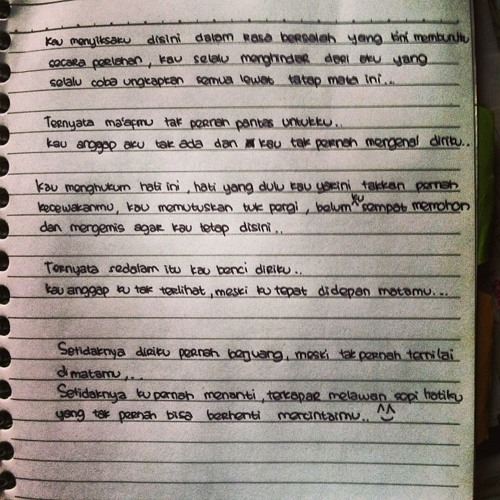 Kau menyiksaku disini dalam rasa bersalah yang kini membunuhku
secara perlahan, kau selalu menghindar dari aku yang
selalu coba ungkapkan semua lewat tatap mata ini...
Ternyata ma'afmu tak pernah pantas untukku..
kau anggap aku tak ada dan kau tak pernah mengenal diriku..
Kau menghukum hati ini, hati yang dulu kau yakini takkan pernah
kecewakanmu, kau memutuskan tuk pergi, belum ku sempat memohon
dan mengemis agar kau tetap disini..
Ternyata sedalam itu kau benci diriku..
kau anggap ku tak terlihat, meski ku tepat didepan matamu...
Setidaknya diriku pernah berjuang, meski tak pernah ternilai
dimatamu,..
Setidaknya ku pernah menanti, terkapar melawan sepi hatiku
yang tak pernah bisa berhenti mencintaimu.. ^^